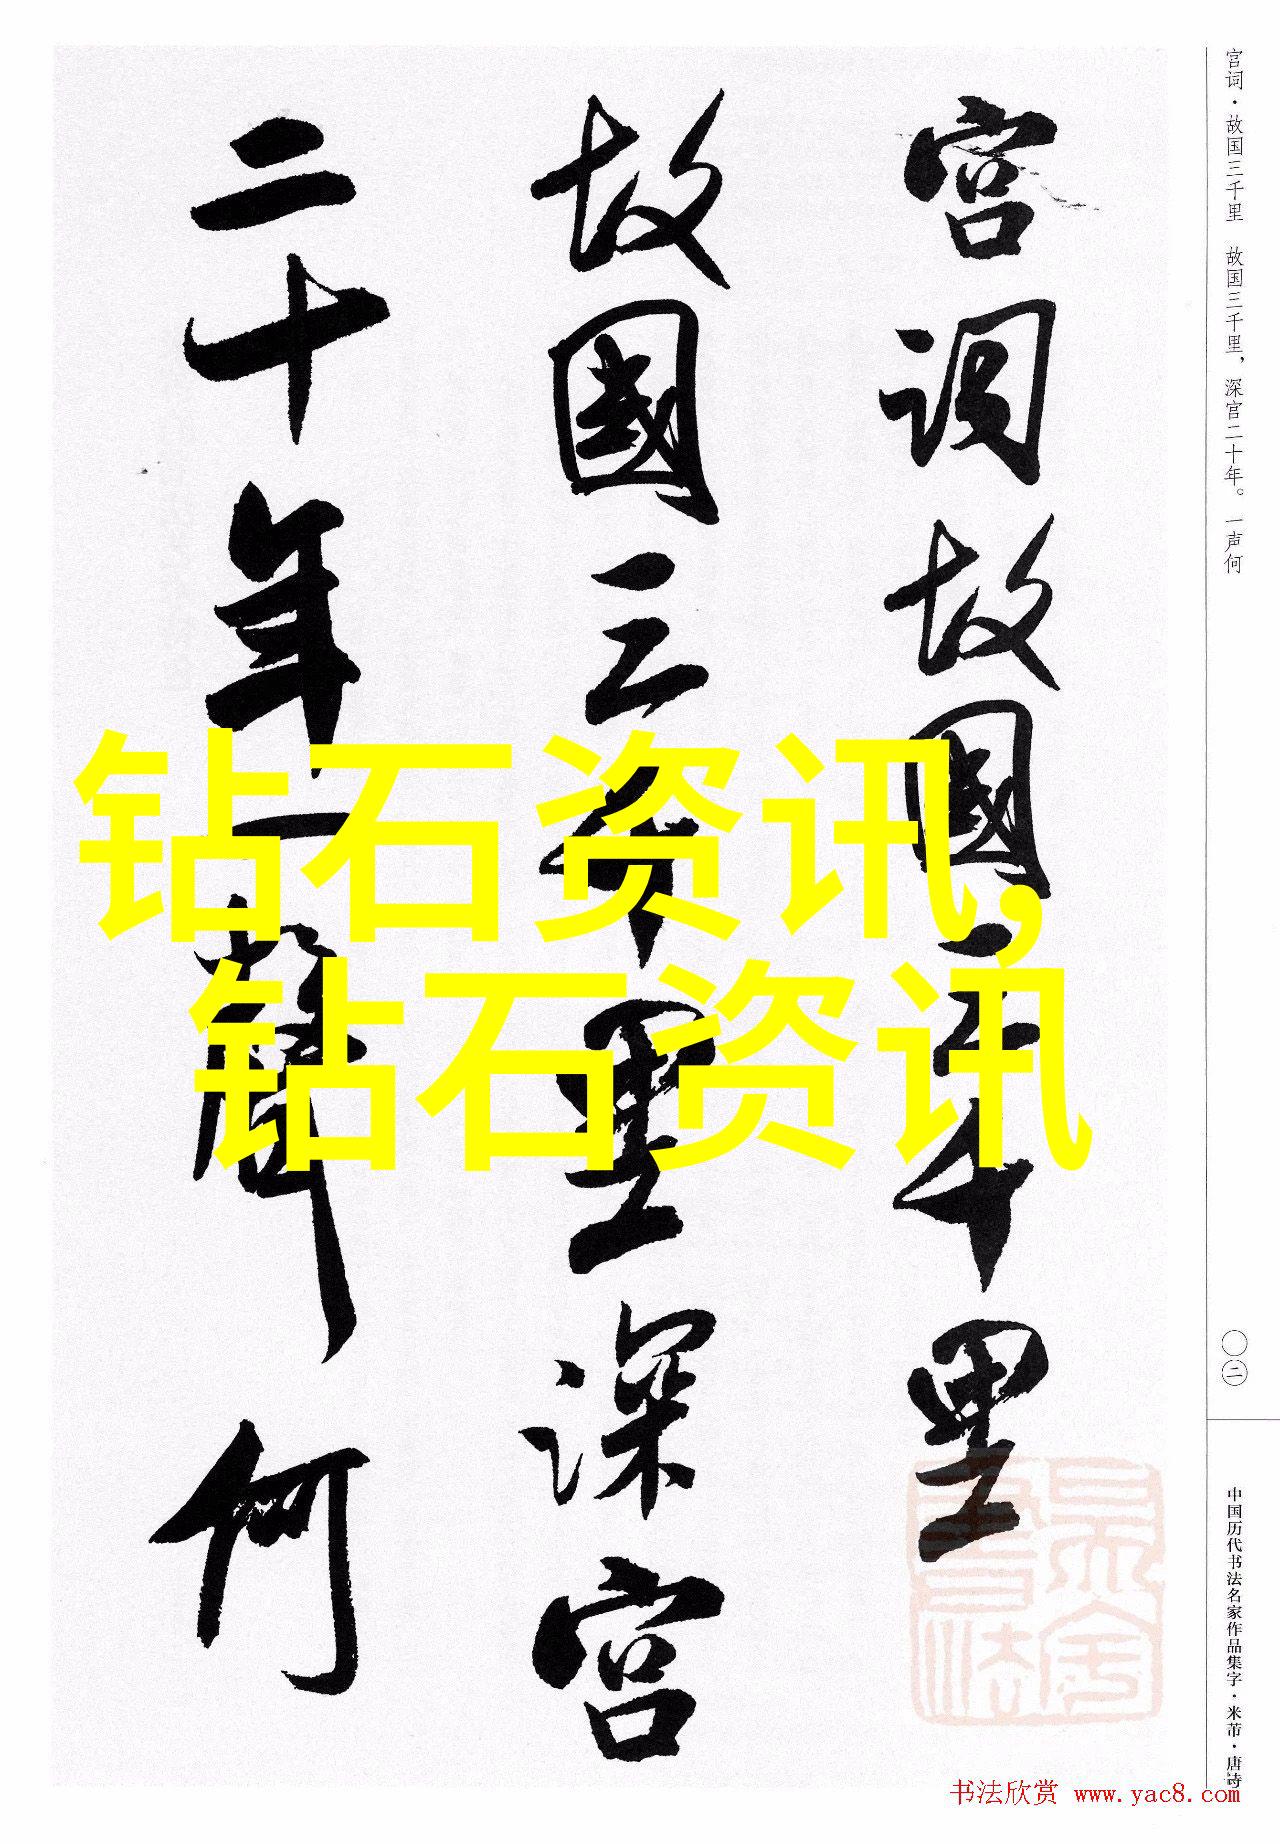 宫词·故国三千里 故国三千里，深宫二十年。一声何
宫词故國三千里
故國三千里深宫
二十年一聲何
钻石资讯,
钻石资讯
〇二
中国历代书法名家作品集字·米芾·唐诗
书法欣赏 www.yac8.com